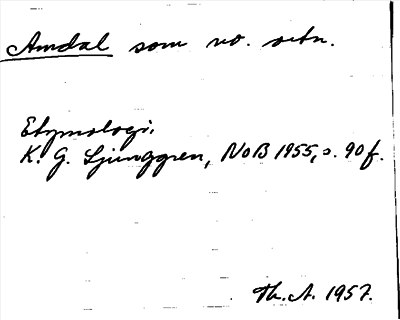 Amdal som no. ortn.
Etymologi.
K. G. Ljunggren, NoB 1955, s. 90 f.
Th. A. 1957.